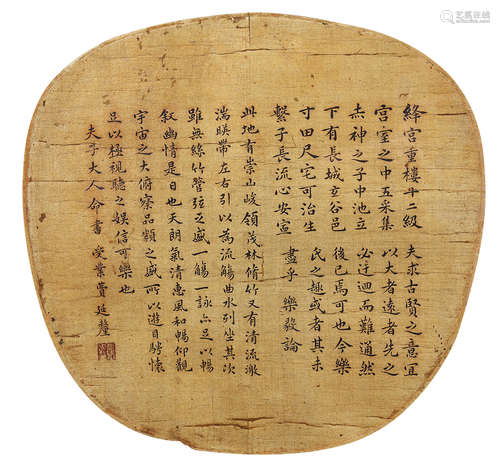 絳宮重樓十二級
宮室之中五采集
赤神之子中池立
下有長城玄谷邑
寸田尺宅可治生
繫子長流心安寧
夫求古賢之意宜
以大者遠者先之
必迂迴而難通然
後已焉可也今樂
氏之趣或者其未
盡乎 樂毅論
此地有崇山峻領茂林脩竹又有清流激
湍暎帶左右引以為流觴曲水列坐其次
雖無絲竹管弦之盛一觴一詠亦足以暢
叙幽情是日也天朗氣清惠風和暢仰觀
宇宙之大俯察品類之盛所以遊目騁懷
足以極視聽之娛信可樂也
夫子大人命書 受業費延釐
艺狐在线